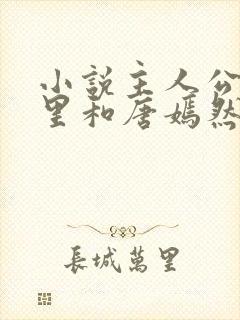 小說主人公
里和唐嫣然
長城萬里